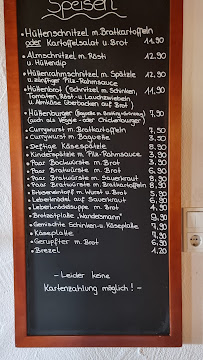 Speisen
Hüttenschnitzel m. Bratkartoffeln
oder Kartoffelsalat u. Brot 11,90
Almschnitzel m. Rösti 12,90
u. Hüttendip
Hüttenrahmschnitzel m. Spätzle 12,90
u. zünftiger Pilz-Rahmsauce
Hüttenbrot (Schnitzel m. Schinken, 11,90
Tomaten, Röst- u. Lauchzwiebeln
u. Almkäse überbacken auf Brot)
Hüttenburger
(auch als Veggie- oder Chickenburger)
Currywurst m. Bratkartoffeln
Currywurst m. Baguette
Deftige Käsespätzle
Kinderspätzle m. Pilz-Rahmsauce
Paar Bockwürste m. Brot
Paar Bratwürste m. Brot
Paar Bratwürste m. Sauerkraut
Paar Bratwürste m. Bratkartoffeln
Erbseneintopf m. Wurst u. Brot
Leberknödel auf Sauerkraut
Leberknödelsuppe m. Brot
Brotzeitplatte „Wandersmann“
Gemischte Schinken-u. Käseplatte
Käseplatte
Gerupfter m. Brot
Brezel 1,20
- Leider keine
Kartenzahlung möglich! -